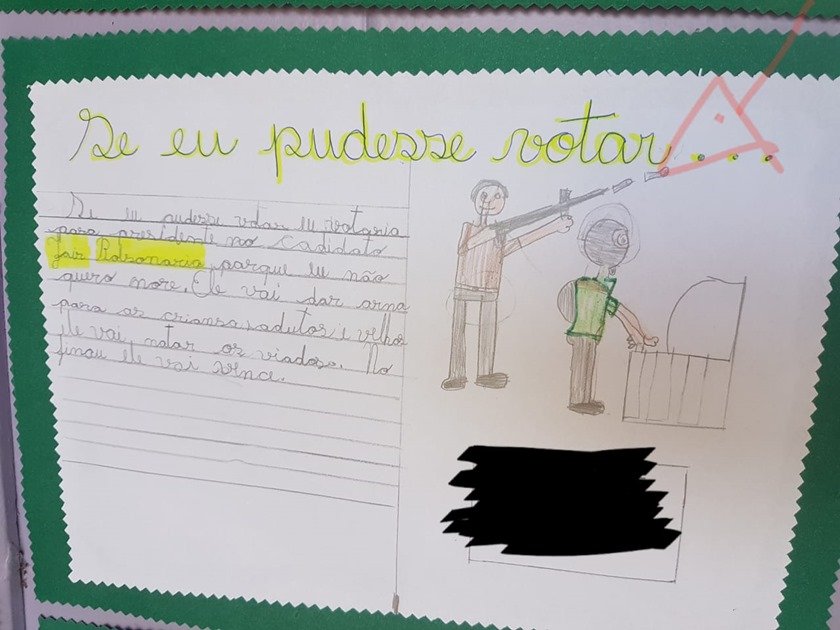 Se eu pudesse votar...
Se eu pudesse votar eu votaria
para presidente no cadidato
Jair Bolsonaria parque eu não
quero more. Ele vai dar arna
para as criansa, adutos e velhos
ele vai matar os viadose. No
finau ele vai vence.